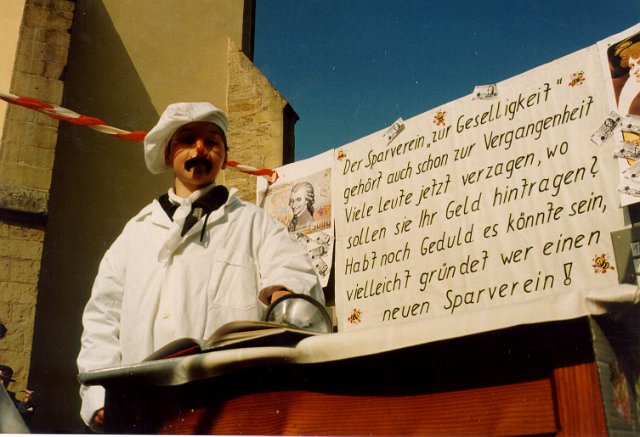 Der Sparverein „zur Geselligkeit"
gehört auch schon zur Vergangenheit
Viele Leute jetzt verzagen, wo
sollen sie Ihr Geld hintragen?
Habt noch Geduld es könnte sein,
vielleicht gründet wer einen
neuen Sparverein!